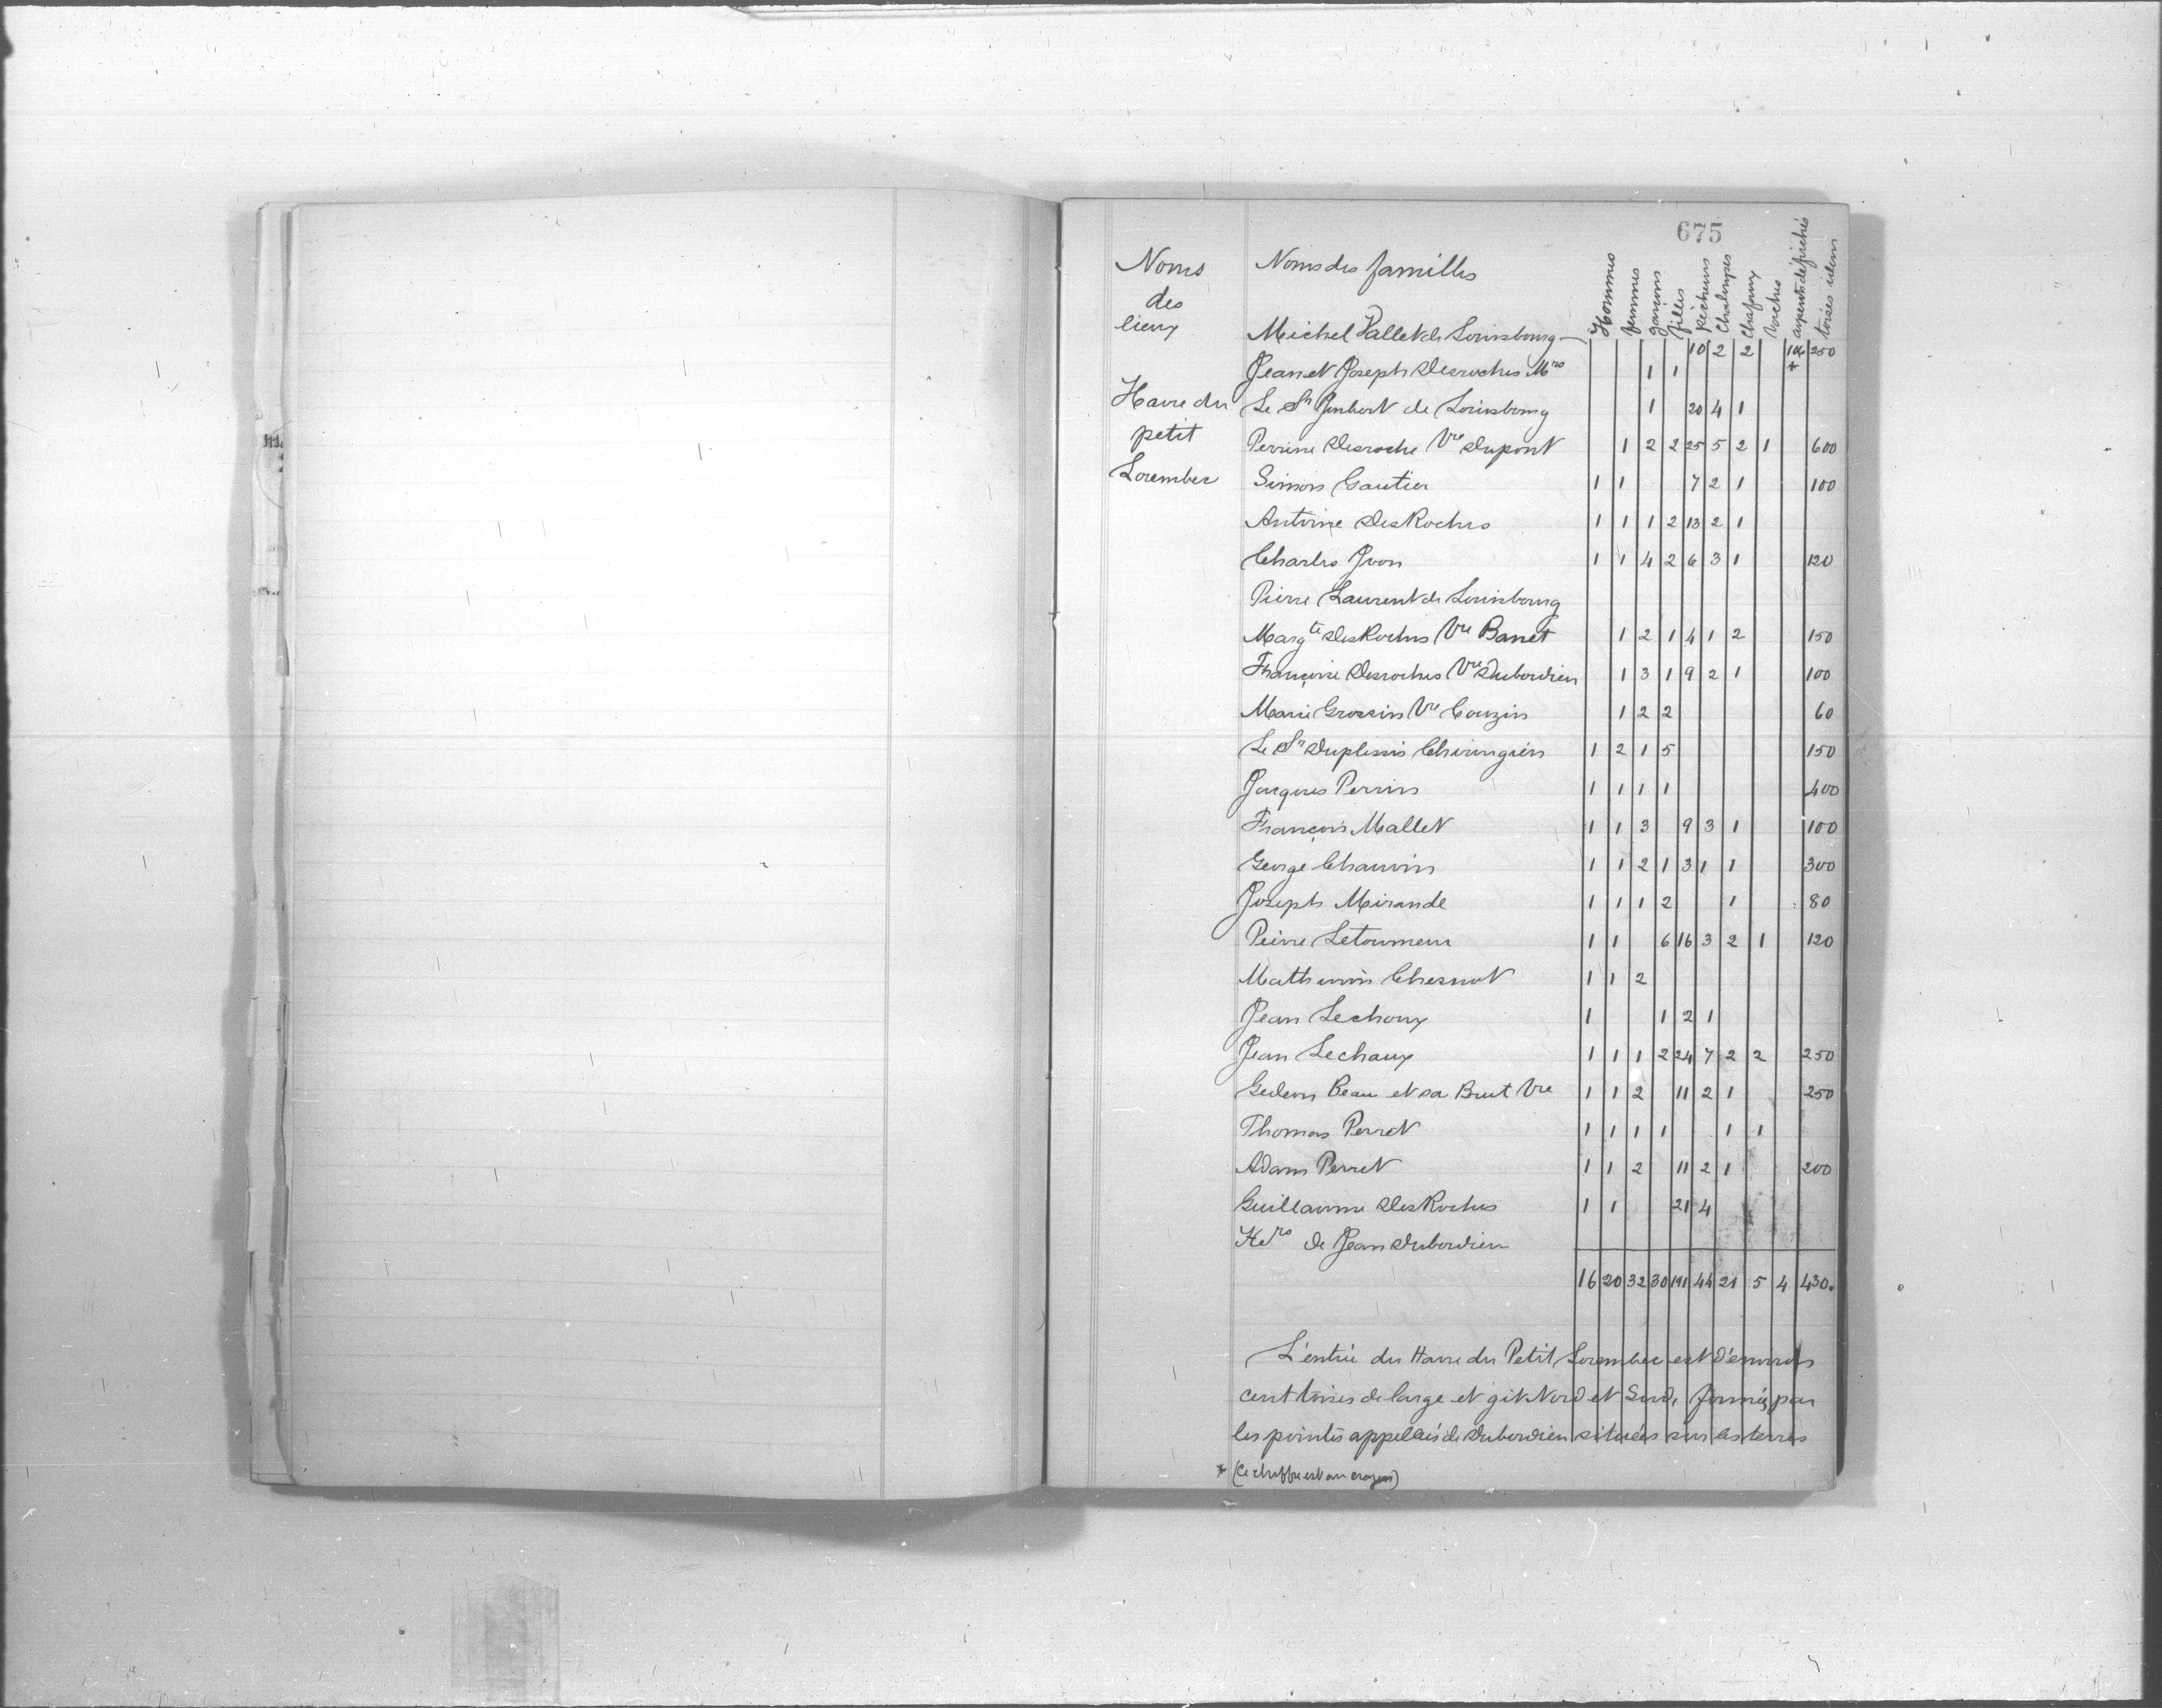 675
Noms des lieux | Noms des familles | Hommes | femmes | garcons | filles | Pécheurs | Chaloupes | Chafaux | Vaches | arpents défrichés | toises idem
Michel Vallet de Louisbourg — 10 2 2 250
Jean et Joseph Desroches Mrs 1 1 *
Havre du petit Lorembec
Le Sr Joubert de Louisbourg 1 20 4 1
Perrine Desroche Vve Dupont 1 2 2 25 5 2 1 600
Simon Gautier 1 1 7 2 1 100
Antoine DesRoches 1 1 1 2 13 2 1
Charles Yvon 1 1 4 2 6 3 1 120
Pierre Laurent de Louisbourg
Margte DesRoches Vve Banet 1 2 1 4 1 2 150
Françoise Desroches Vve Dubordieu 1 3 1 9 2 1 100
Marie Grossin Vve Couzin 1 2 2 60
Le Sr Duplessis Chirurgien 1 2 1 5 150
Jacques Perrin 1 1 1 1 400
François Mallet 1 1 3 9 3 1 100
George Chauvin 1 1 2 1 3 1 1 300
Joseph Mirande 1 1 1 2 1 80
Peirre Letourneur 1 1 6 16 3 2 1 120
Mathurin Chesnot 1 1 2
Jean Lechoux 1 1 2 1
Jean Lechaux 1 1 1 2 24 7 2 2 250
Gedeon Beau et sa Brut Vve 1 1 2 11 2 1 250
Thomas Perret 1 1 1 1 1 1
Adam Perret 1 1 2 11 2 1 200
Guillaume DesRoches 1 1 21 4
Hers de Jean Dubordieu
16 20 32 30 191 44 21 5 4 430.
L'entrée du Havre du Petit Lorembec est d'environ
cent toises de large et git Nord et Sud, formée par
les pointes appellées de Dubordieu situées sur les terres
* (Ce chiffre est au crayon)